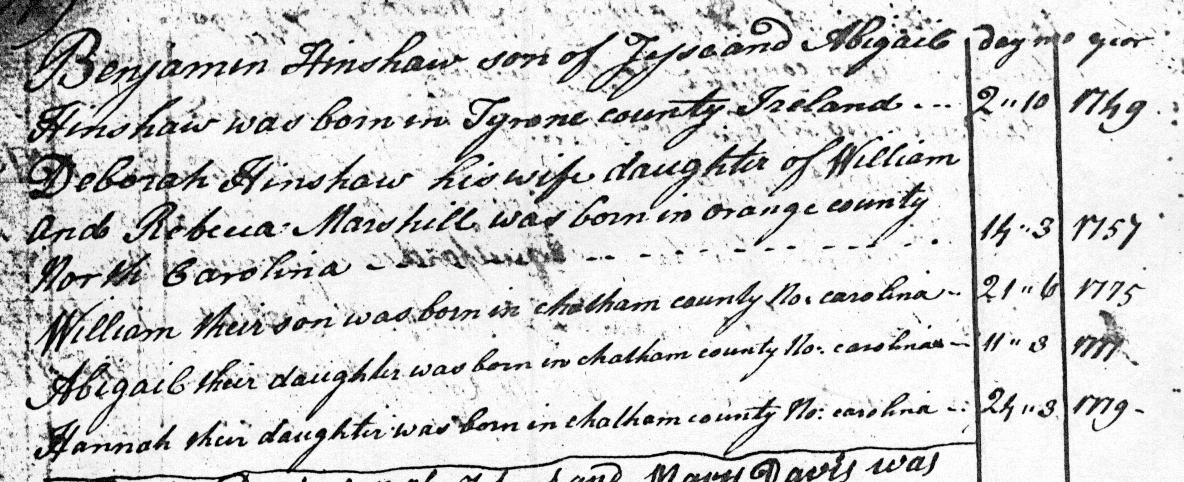 Benjamin Hinshaw son of Jesse and Abigail day mo year
Hinshaw was born in Tyrone county Ireland ... 2 " 10 1749
Deborah Hinshaw his wife daughter of William
and Rebecca Marshill was born in orange county 14 " 3 1757
North Carolina
William their son was born in chatham county No: carolina 21 " 6 1775
Abigail their daughter was born in chatham county No: carolina 11 " 3 1777
Hannah their daughter was born in chatham county No: carolina 24 " 3 1779
and Mary Davis was